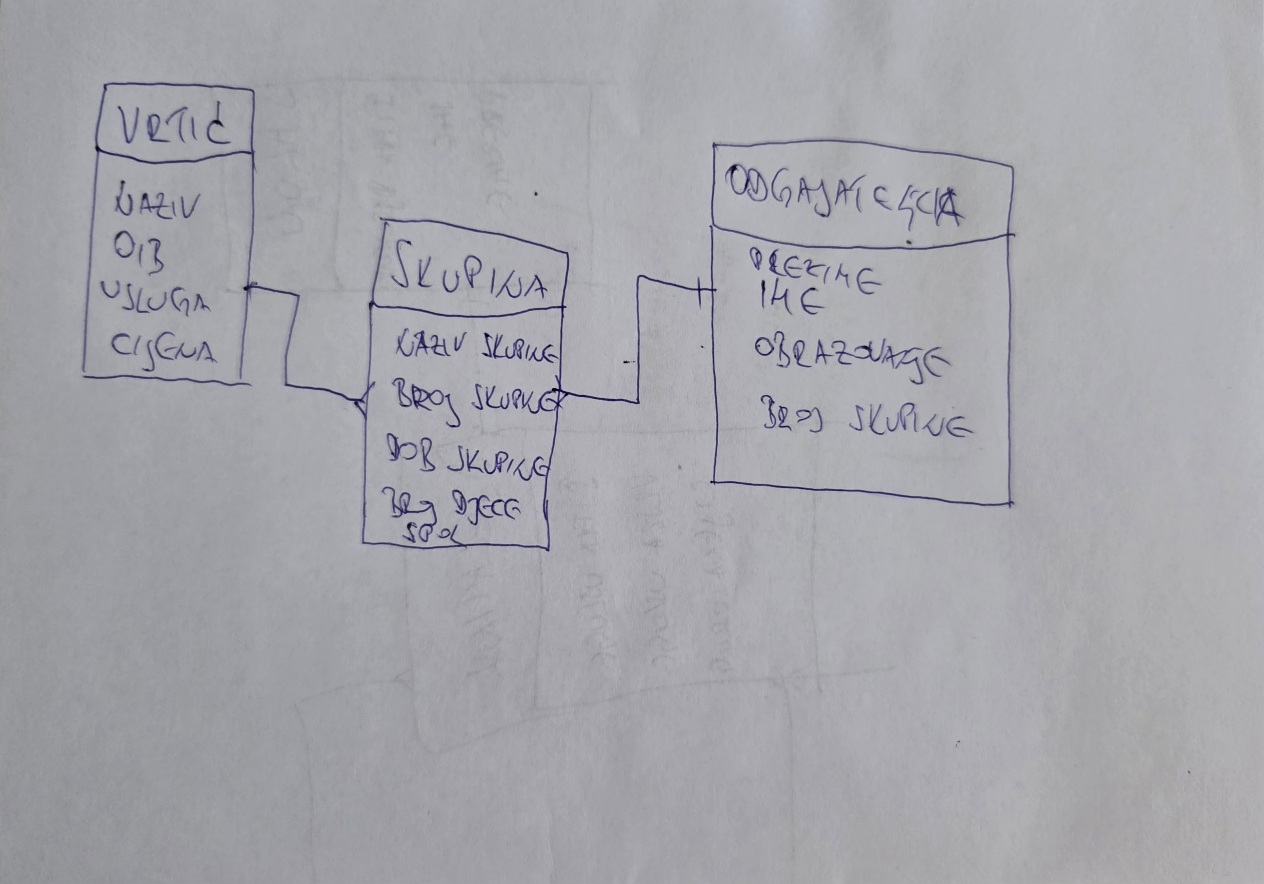 VRTIĆ
NAZIV
OIB
USLUGA
CIJENA
SKUPINA
NAZIV SKUPINE
BROJ SKUPINE
DOB SKUPINE
BROJ DJECE
SPOL
ODGAJATELJICA
PREZIME
IME
OBRAZOVANJE
BROJ SKUPINE